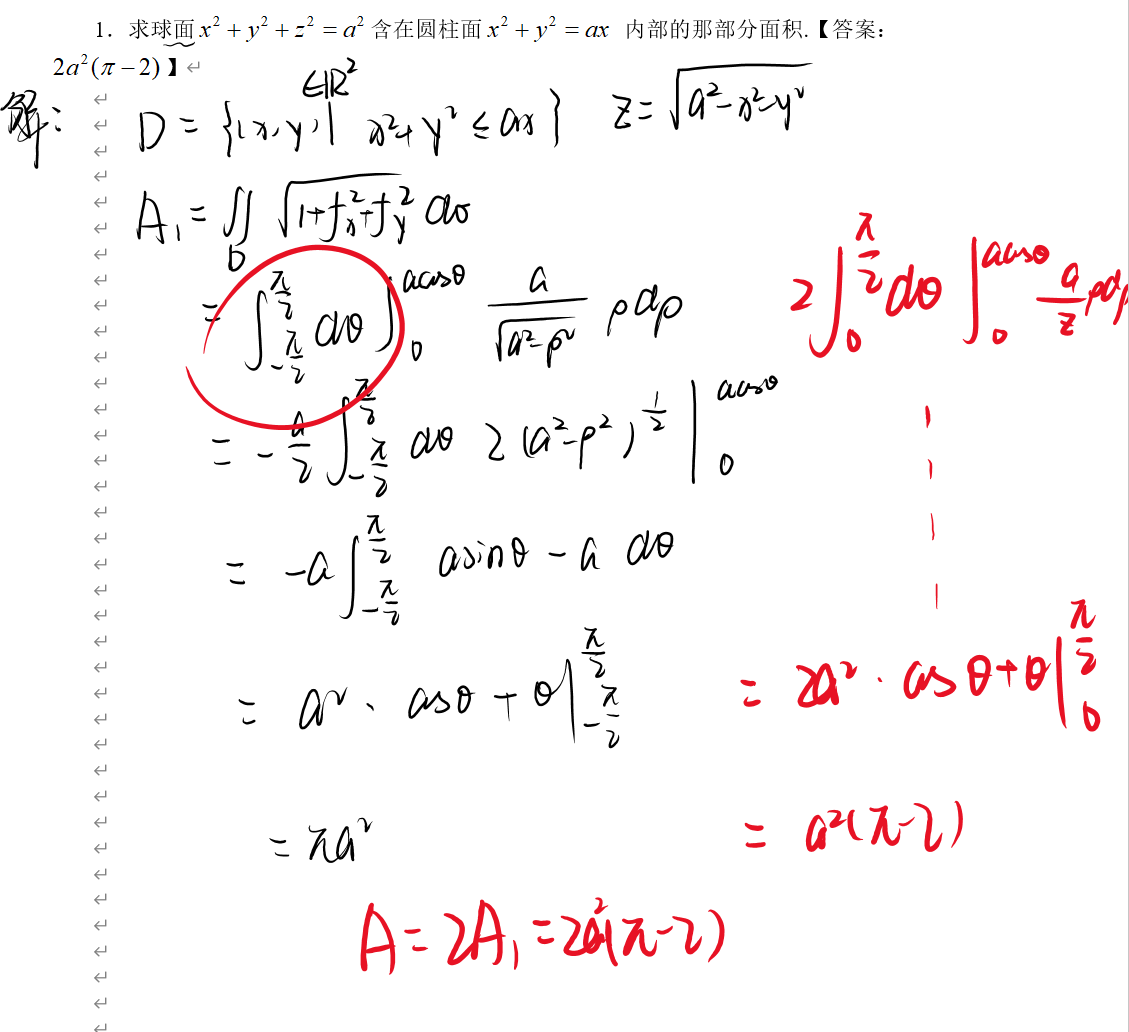 1．求球面 x² + y² + z² = a² 含在圆柱面 x² + y² = ax 内部的那部分面积.【答案：
2a²(π − 2)】↵
解： D = {(x, y) ∈ℝ² | x² + y² ≤ ax} z = √(a² − x² − y²)
A₁ = ∬_D √(1 + f_x² + f_y²) dσ
= ∫_{-π/2}^{π/2} dθ ∫_0^{acosθ} a/√(a² − ρ²) ρdρ 2∫_0^{π/2} dθ ∫_0^{acosθ} a/z ρdρ
= − a/2 ∫_{-π/2}^{π/2} dθ 2(a² − ρ²)^{1/2} |_0^{acosθ}
= −a ∫_{-π/2}^{π/2} asinθ − a dθ
= a² · cosθ + θ |_{-π/2}^{π/2} = 2a² · cosθ + θ |_0^{π/2}
= πa² = a²(π − 2)
A = 2A₁ = 2a²(π − 2)